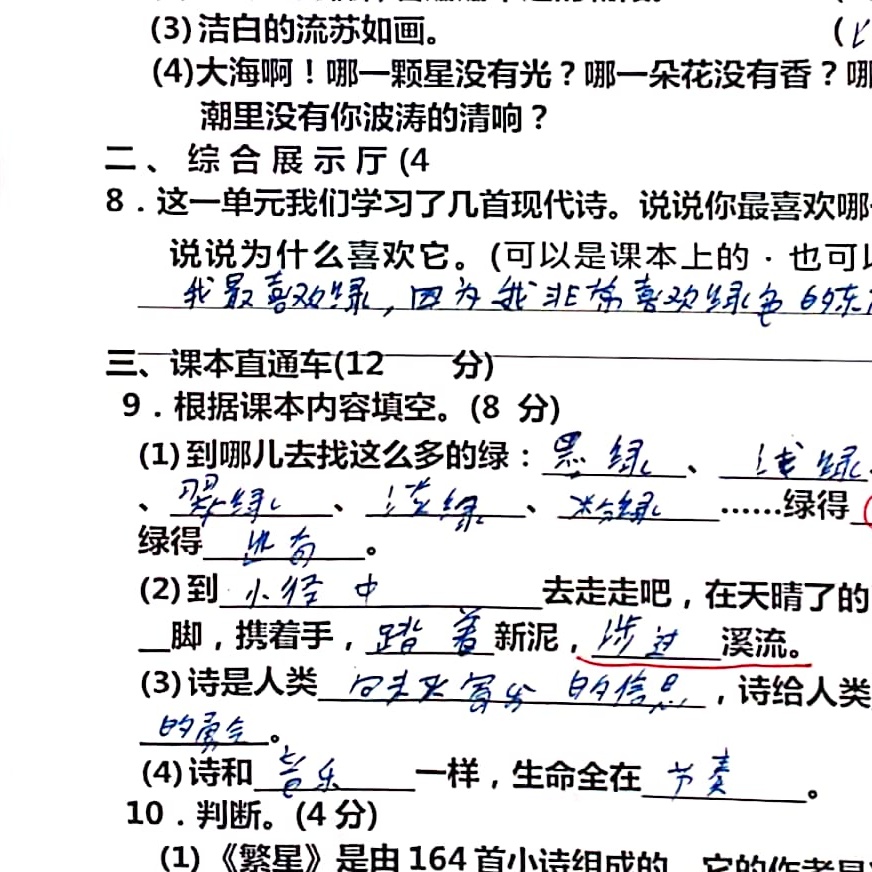 (3) 洁白的流苏如画。 (
(4)大海啊！哪一颗星没有光？哪一朵花没有香？哪
潮里没有你波涛的清响？
二、综合展示厅(4
8．这一单元我们学习了几首现代诗。说说你最喜欢哪
说说为什么喜欢它。(可以是课本上的·也可以
我最喜欢绿，因为我非常喜欢绿色的东
三、课本直通车(12 分)
9．根据课本内容填空。(8 分)
(1) 到哪儿去找这么多的绿：墨绿、浅绿
、翠绿、淡绿、粉绿……绿得
绿得出奇。
(2) 到小径中去走走吧，在天晴了的
脚，携着手，踏着新泥，涉过溪流。
(3) 诗是人类向未来寄发的信息，诗给人类
的勇气。
(4) 诗和音乐一样，生命全在节奏。
10．判断。(4 分)
(1) 《繁星》是由 164 首小诗组成的